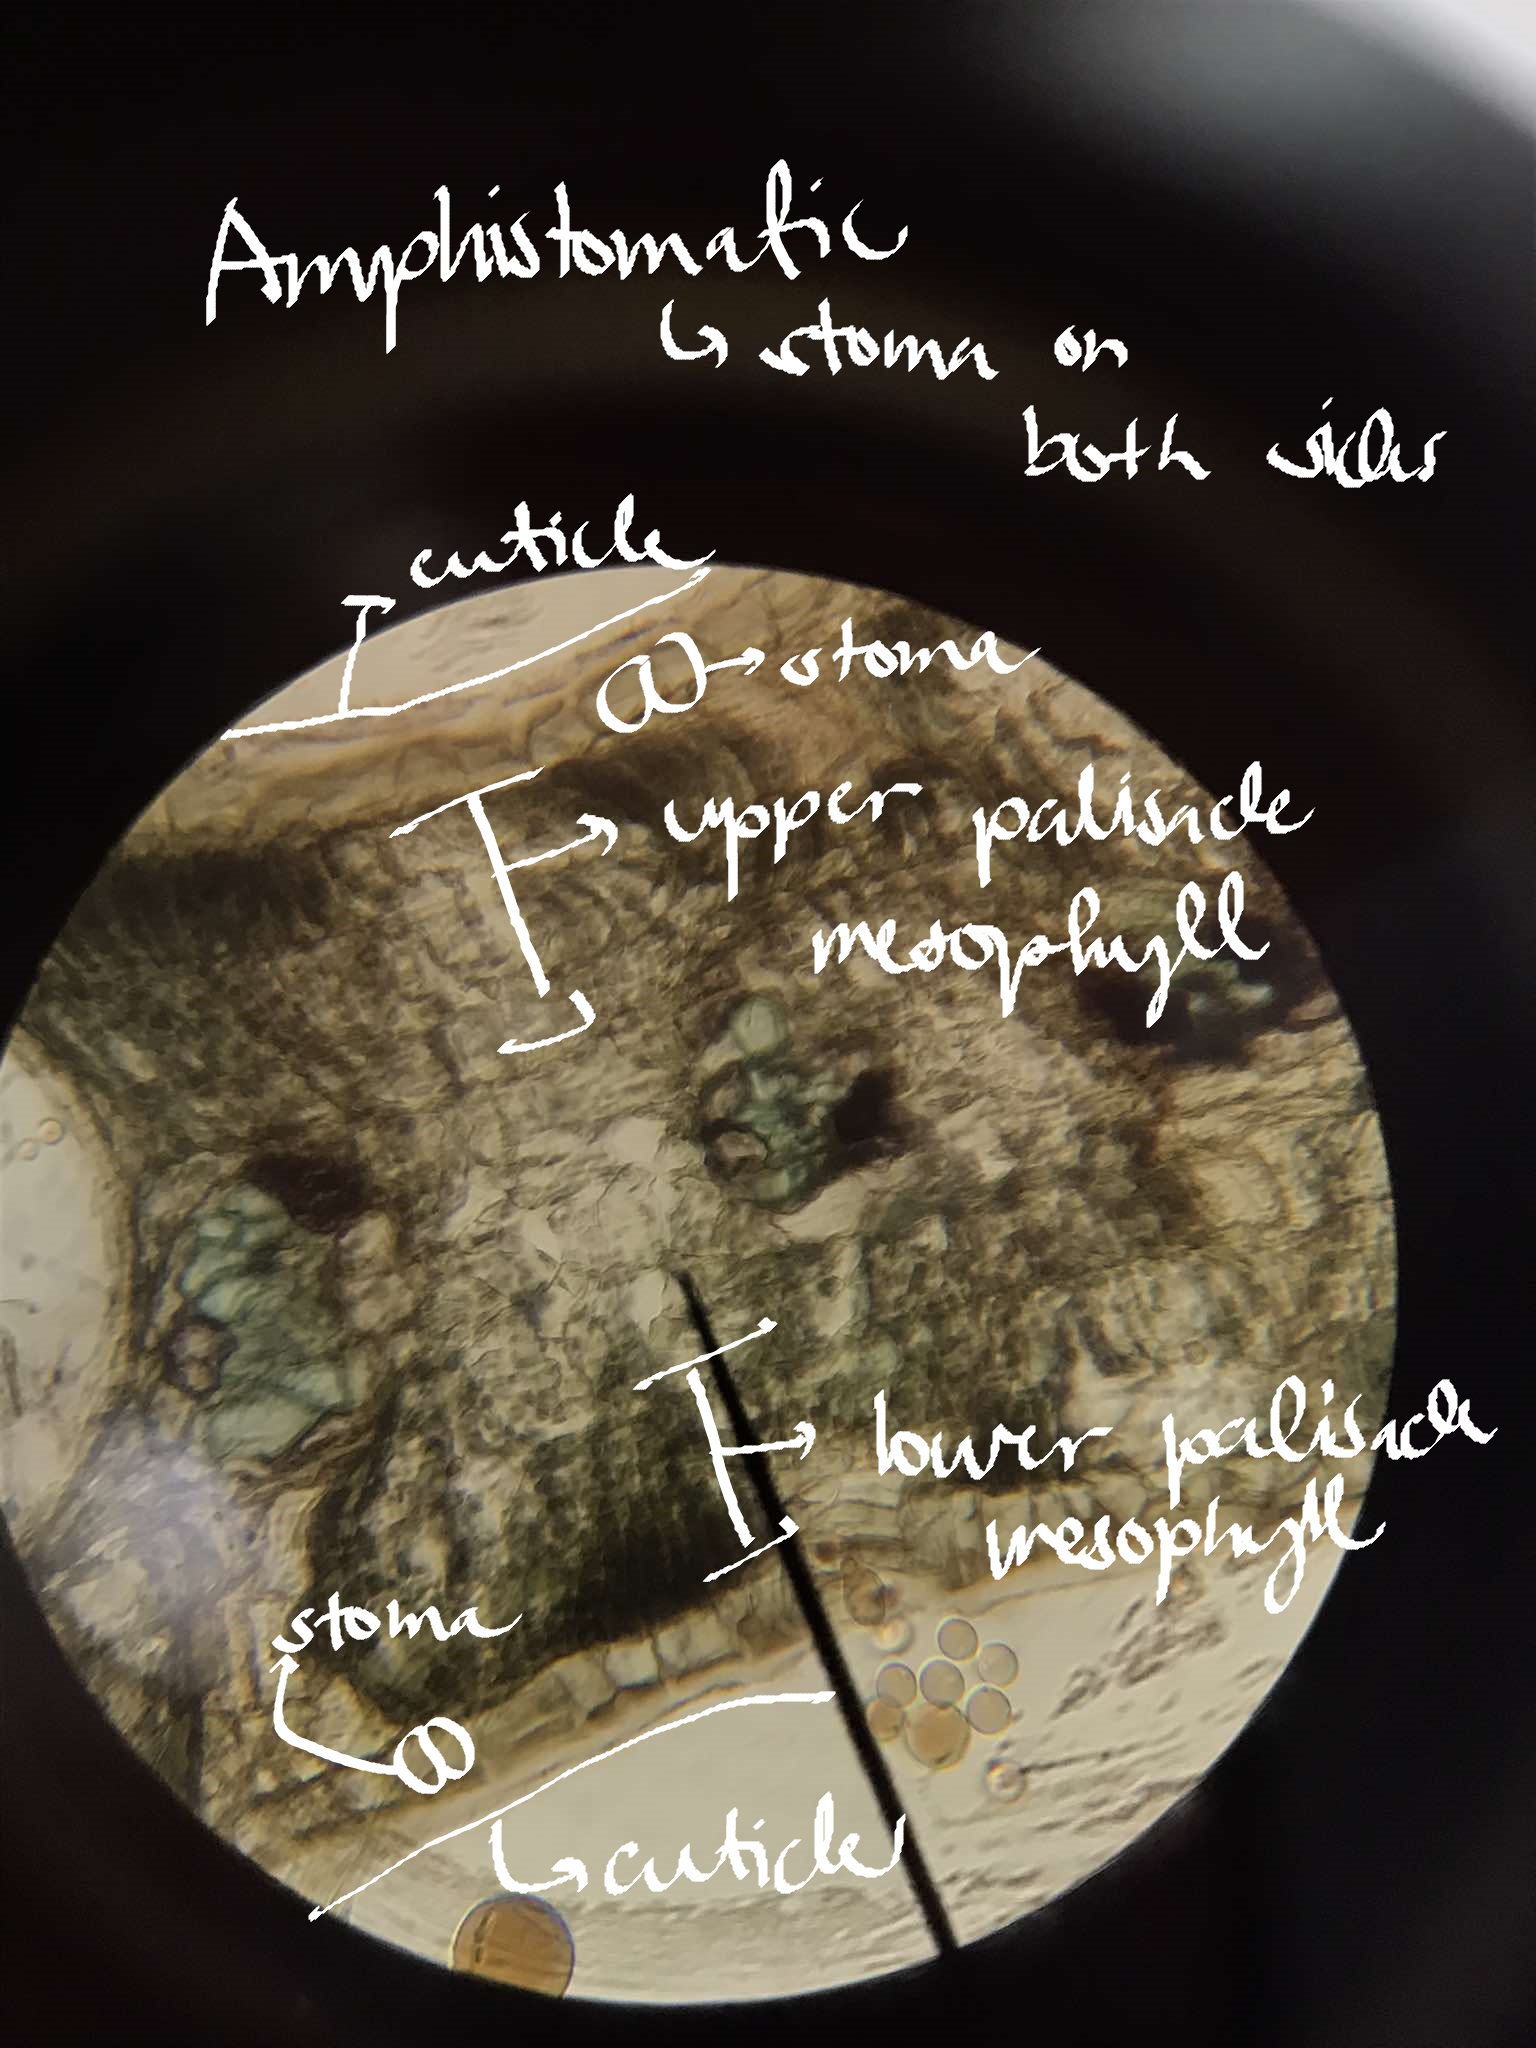 Amphistomatic
↳ stoma on
both sides
cuticle
→ stoma
→ upper palisade
mesophyll
→ lower palisade
mesophyll
stoma
↳ cuticle